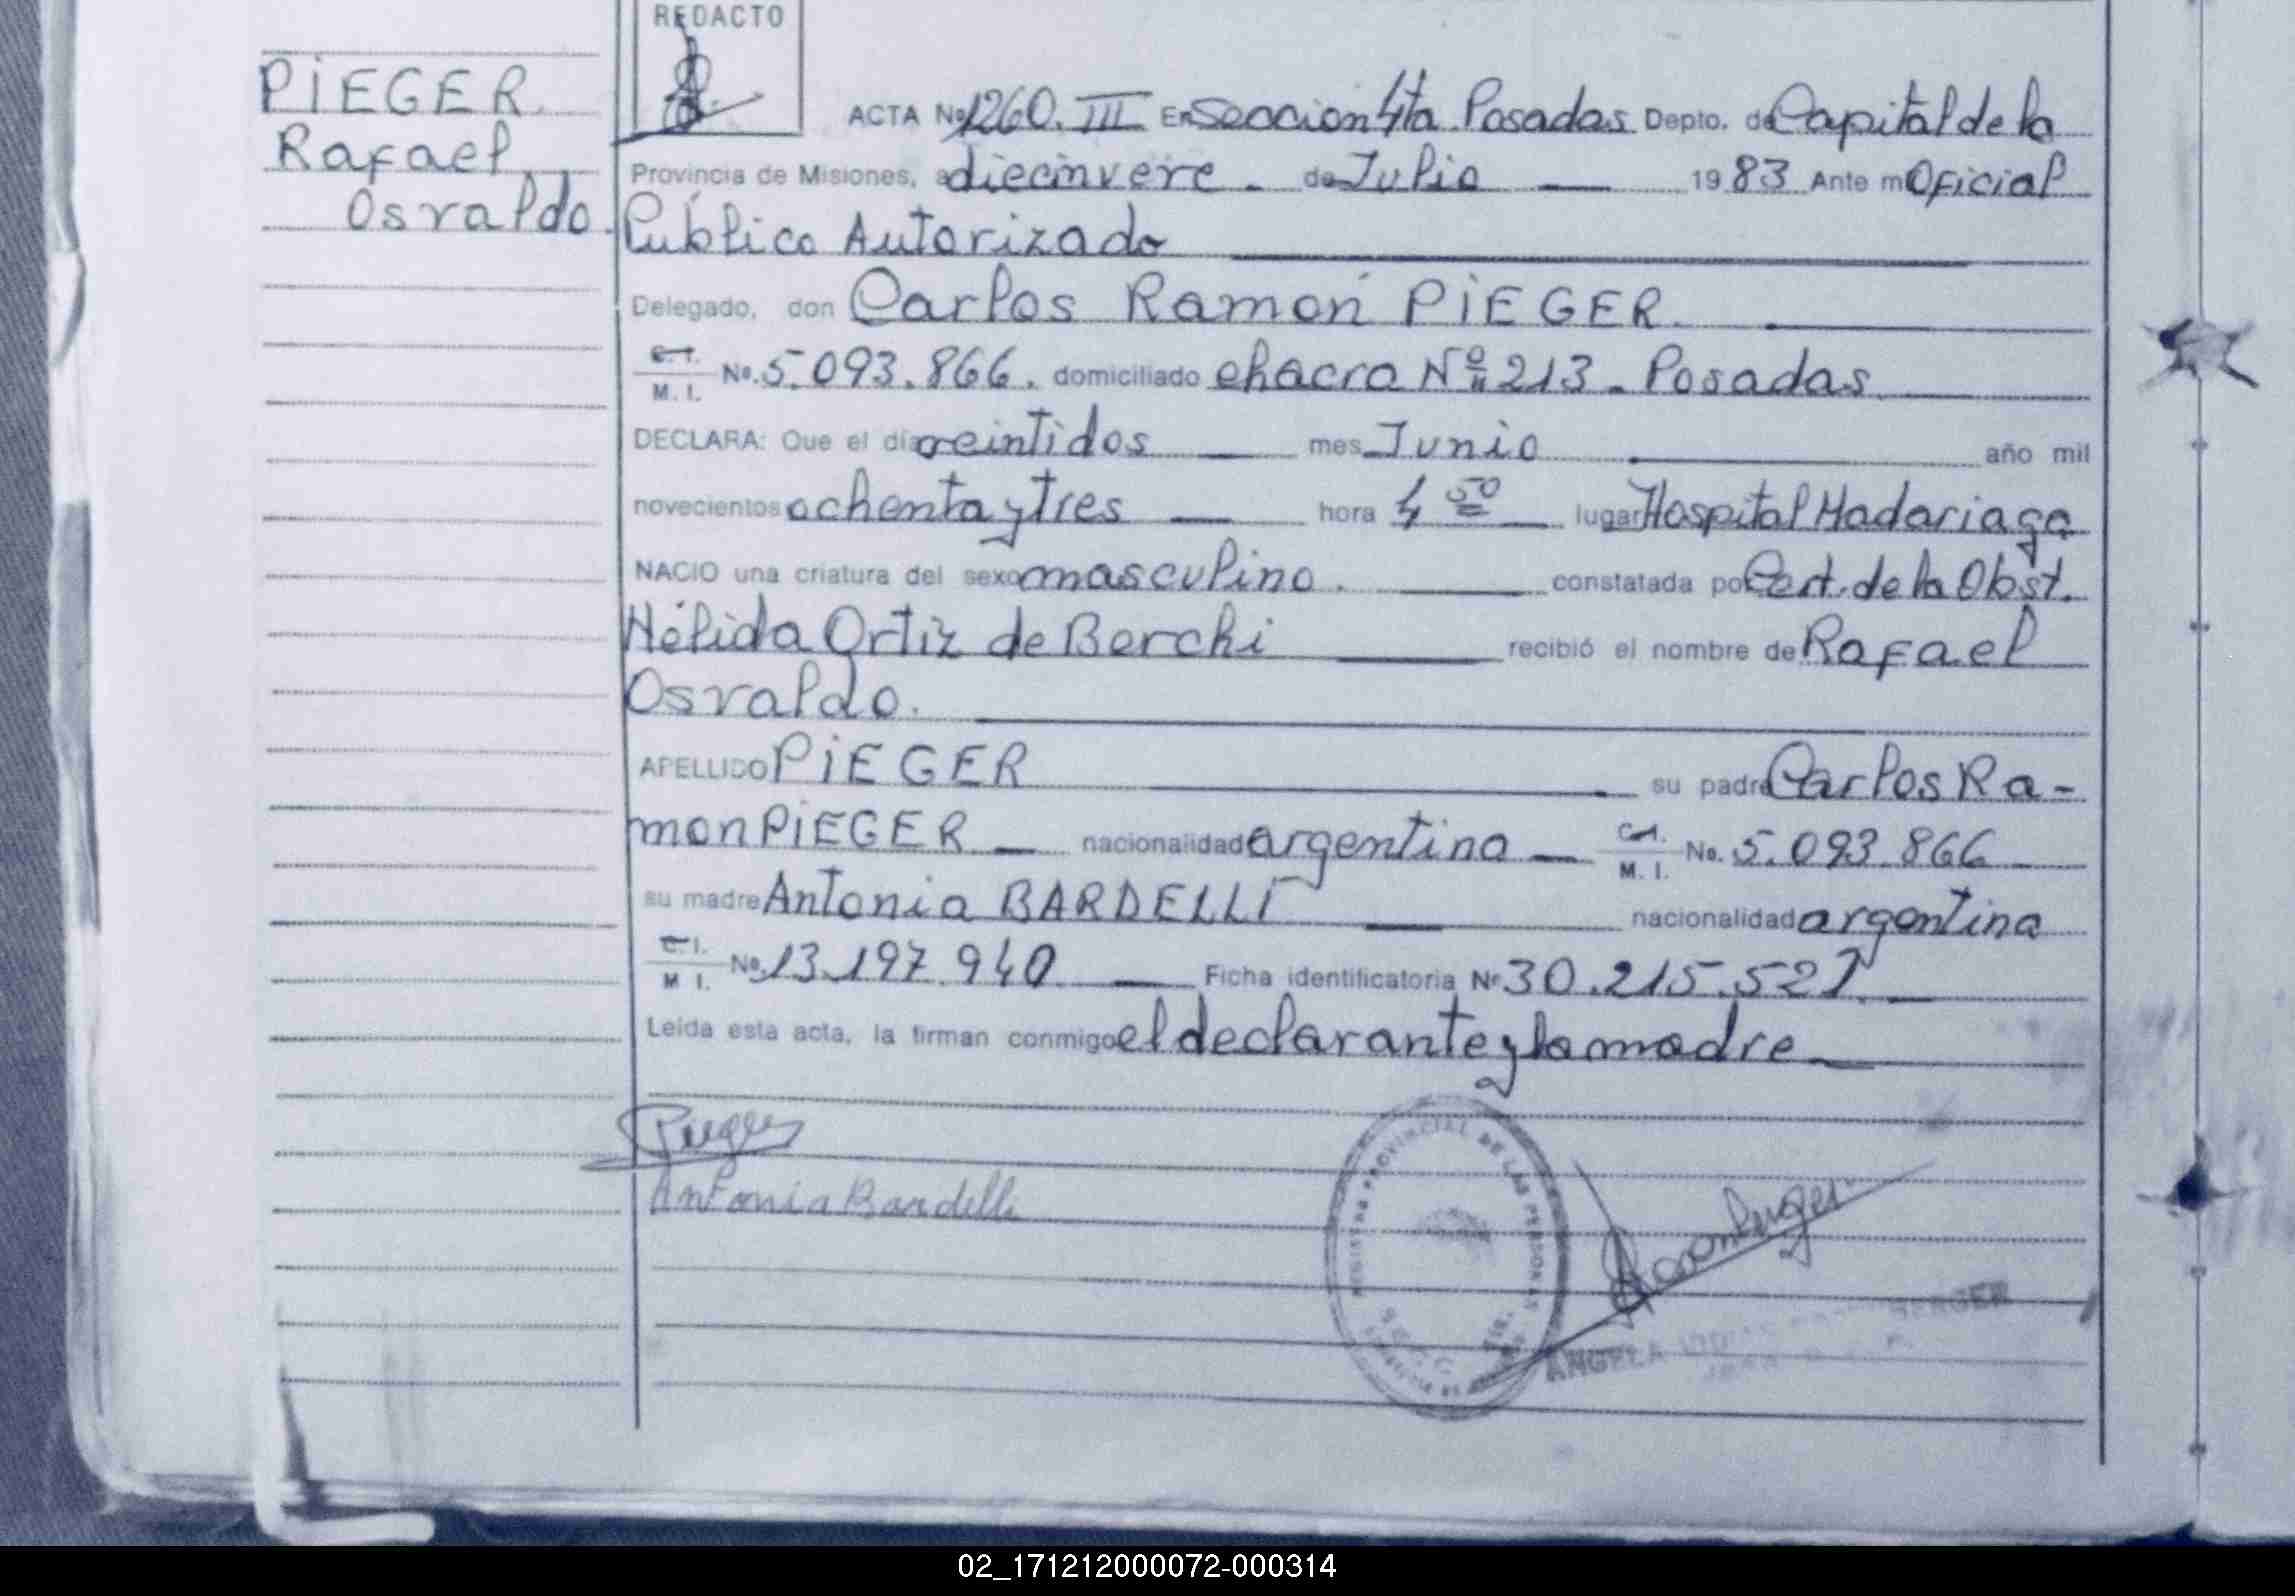 REDACTO
PIEGER
Rafael
Osvaldo.
ACTA No 1260. III En Seccion 4ta. Posadas Depto. de Capital de la
Provincia de Misiones, a diecinveve. de Julio 1983 Ante mi Oficial
Público Autorizado
Delegado, don Carlos Ramón PIEGER.
C.I. M.I. No. 5.093.866. domiciliado chacra Nº 213 - Posadas
DECLARA: Que el día veintidos mes Junio año mil
novecientos ochenta y tres hora 4 50 lugar Hospital Madariaga
NACIO una criatura del sexo masculino. constatada por Cert. de la Obst.
Nélida Ortiz de Berchi recibió el nombre de Rafael
Osvaldo.
APELLIDO PIEGER su padre Carlos Ra-
mon PIEGER nacionalidad argentina C.I. M.I. No. 5.093.866
su madre Antonia BARDELLI nacionalidad argentina
C.I. M.I. No. 13.197.940 Ficha identificatoria Nº 30.215.521.
Leída esta acta, la firman conmigo el declarante y la madre
Pieger
Antonia Bardelli
REGISTRO PROVINCIAL DE LAS PERSONAS
ANGELA BERGER
02_171212000072-000314